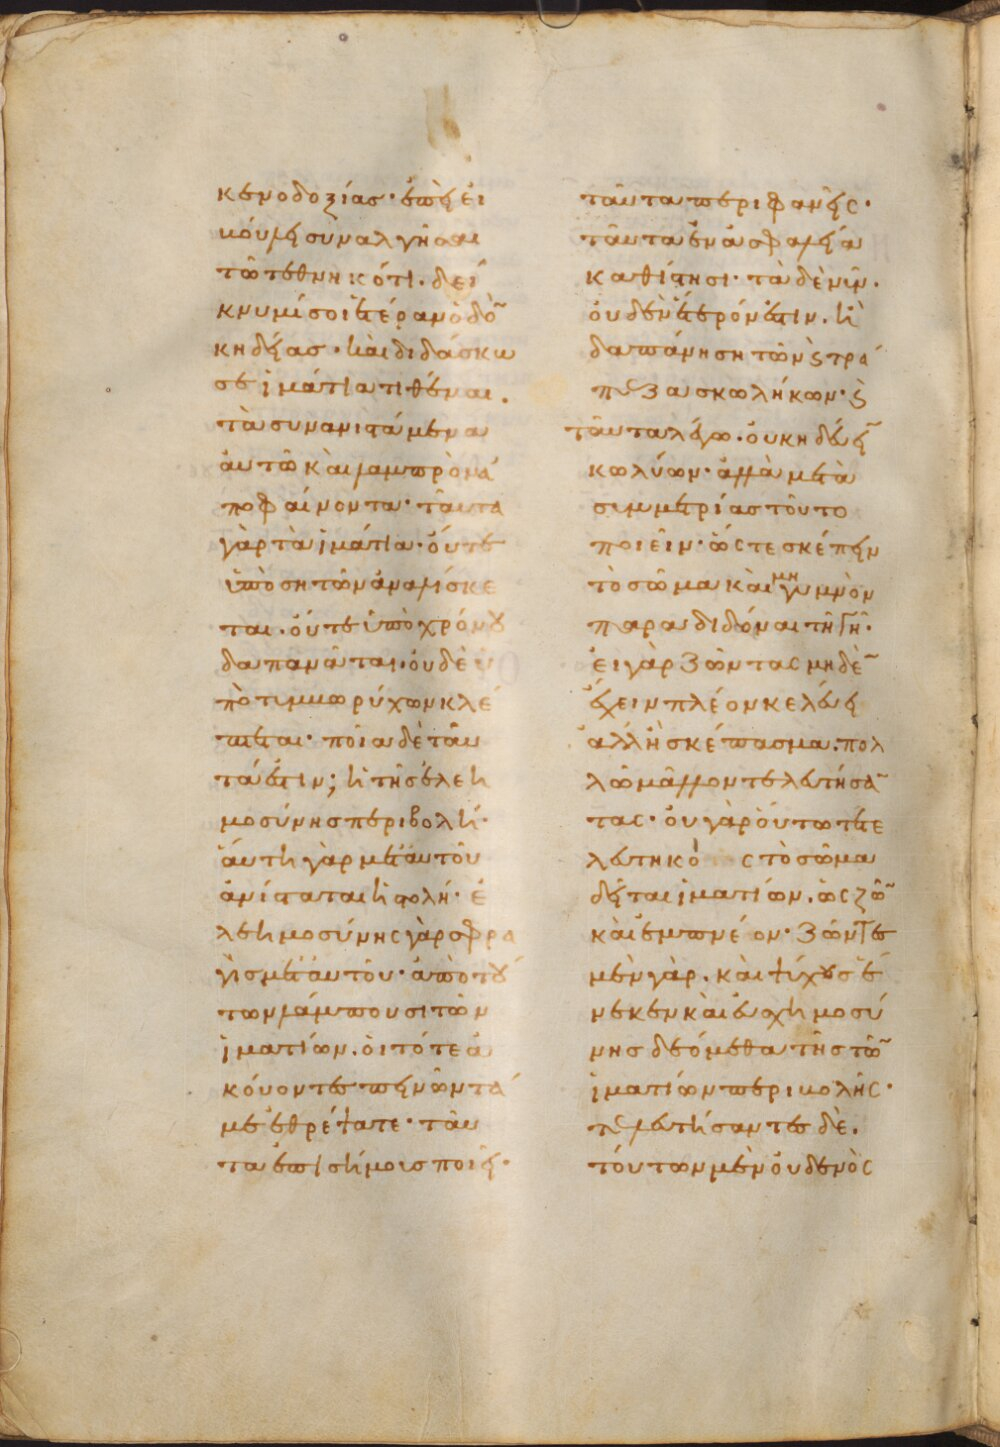 κενοδοξίας· ἐπὴ εἰ
κούμη συναλγῆσαι
τῶ τεθνηκότι. δεί
κνυμί σοι ἑτέραν ὁδὸ̄
κηδείας· καὶ διδάσκω
σε ἱμάτια τιθέναι.
τὰ συνανιστάμενα
ἀυτῶ κὰι λαμπρὸν ἀ
ποφαίνοντα· τᾶυτα
γὰρ τὰ ἱμάτια· ὄυτε
ὑπὸ σητῶν ἀναλίσκε
ται. ὄυτε ὑπὸ χρόνου
δαπανᾶται. ὀυδὲ ὑ
πὸ τυμμωρύχων κλέ
πτεται· ποῖα δὲ τᾶυ
τά ἐστιν; ἡ τῆς ἐλεη
μοσύνης περιβολή·
ἅυτη γὰρ μετ' ἀυτοῦ
ἀνίσταται ἡ στολή· ἐ
λεημοσύνης γὰρ σφρα
γὶς μετ' ἀυτοῦ· ἀπὸ τού
των λάμπουσι τῶν
ἱματίων. ὁι τότε ἀ
κόυοντες πεινῶντά
με ἐθρέψατε· τᾶυ
τα ἐπισήμοις ποιεῖ·
τᾶυτα περιφανεῖς·
τᾶυτα ἐν ἀσφαλεία
καθίστησι· τὰ δὲ νῦν.
ὀυδὲν ἕτερόν ἐστιν. ἢ
δαπάνη σητῶν ϗ τρά
πεζα σκωλήκων· ϗ
τᾶυτα λέγω. ὀυ κηδέυει̅
κωλύων· ἀλλὰ μετὰ
συμμετρίας τοῦτο
ποιεῖν· ὥστε σκέπειν
τὸ σῶμα κὰι μὴ γυμνὸν
παραδιδόναι τῆ γῆ·
ἐι γὰρ ζῶντας μηδὲ̄
ἔχειν πλέον κελέυει
ἀλλ' ἢ σκέπασμα. πολ
λῶ μᾶλλον τελευτήσα̅
τας· ὀυ γὰρ ὅυτω τετε
λευτηκὸ ς τὸ σῶμα
δεῖται ἱματίων. ὡς ζῶ̅
κὰι ἐμπνέον· ζῶντες
μὲν γὰρ. κὰι ψύχους ἕ
νεκεν κὰι ἐυσχημοσύ
νης δεόμεθα τῆς τῶ̅
ἱματίων περιβολῆς·
τελευτήσαντες δὲ.
τόυτων μὲν ὀυδενὸς